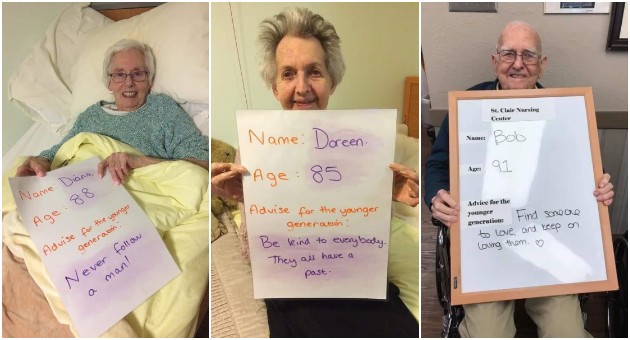 Name: Diana.
Age: 88
Advise for the younger
generation:
Never follow
a man!
Name: Doreen.
Age: 85
Advise for the younger
generation:
Be kind to everybody.
They all have a
past.
St. Clair Nursing
Center
Name: Bob
Age: 91
Advice for the
younger
generation: Find someone
to love, and keep on
loving them. ♡